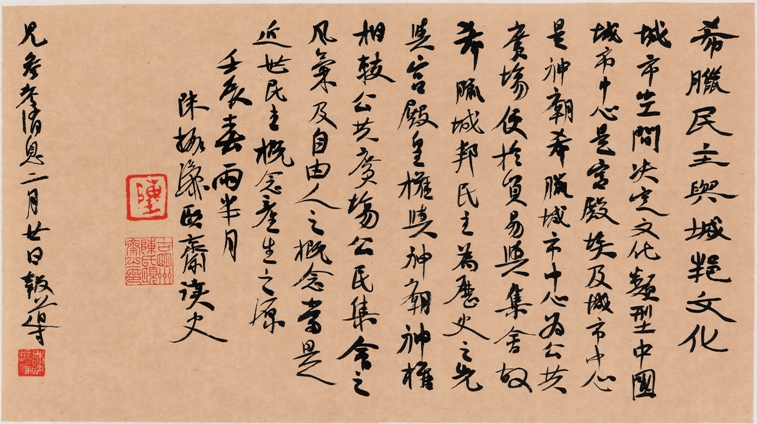 希臘民主與城邦文化
城市空間決定文化類型中國
城市中心是宮殿埃及城市中心
是神廟希臘城市中心為公共
廣場便於貿易與集會故
希臘城邦民主為歷史之先
與宮殿皇權與神廟神權
相較公共廣場公民集會之
風氣及自由人之概念當是
近世民主概念產生之源
壬辰春兩半月
陳 齋讀史
見參考消息二月廿日報導
陳